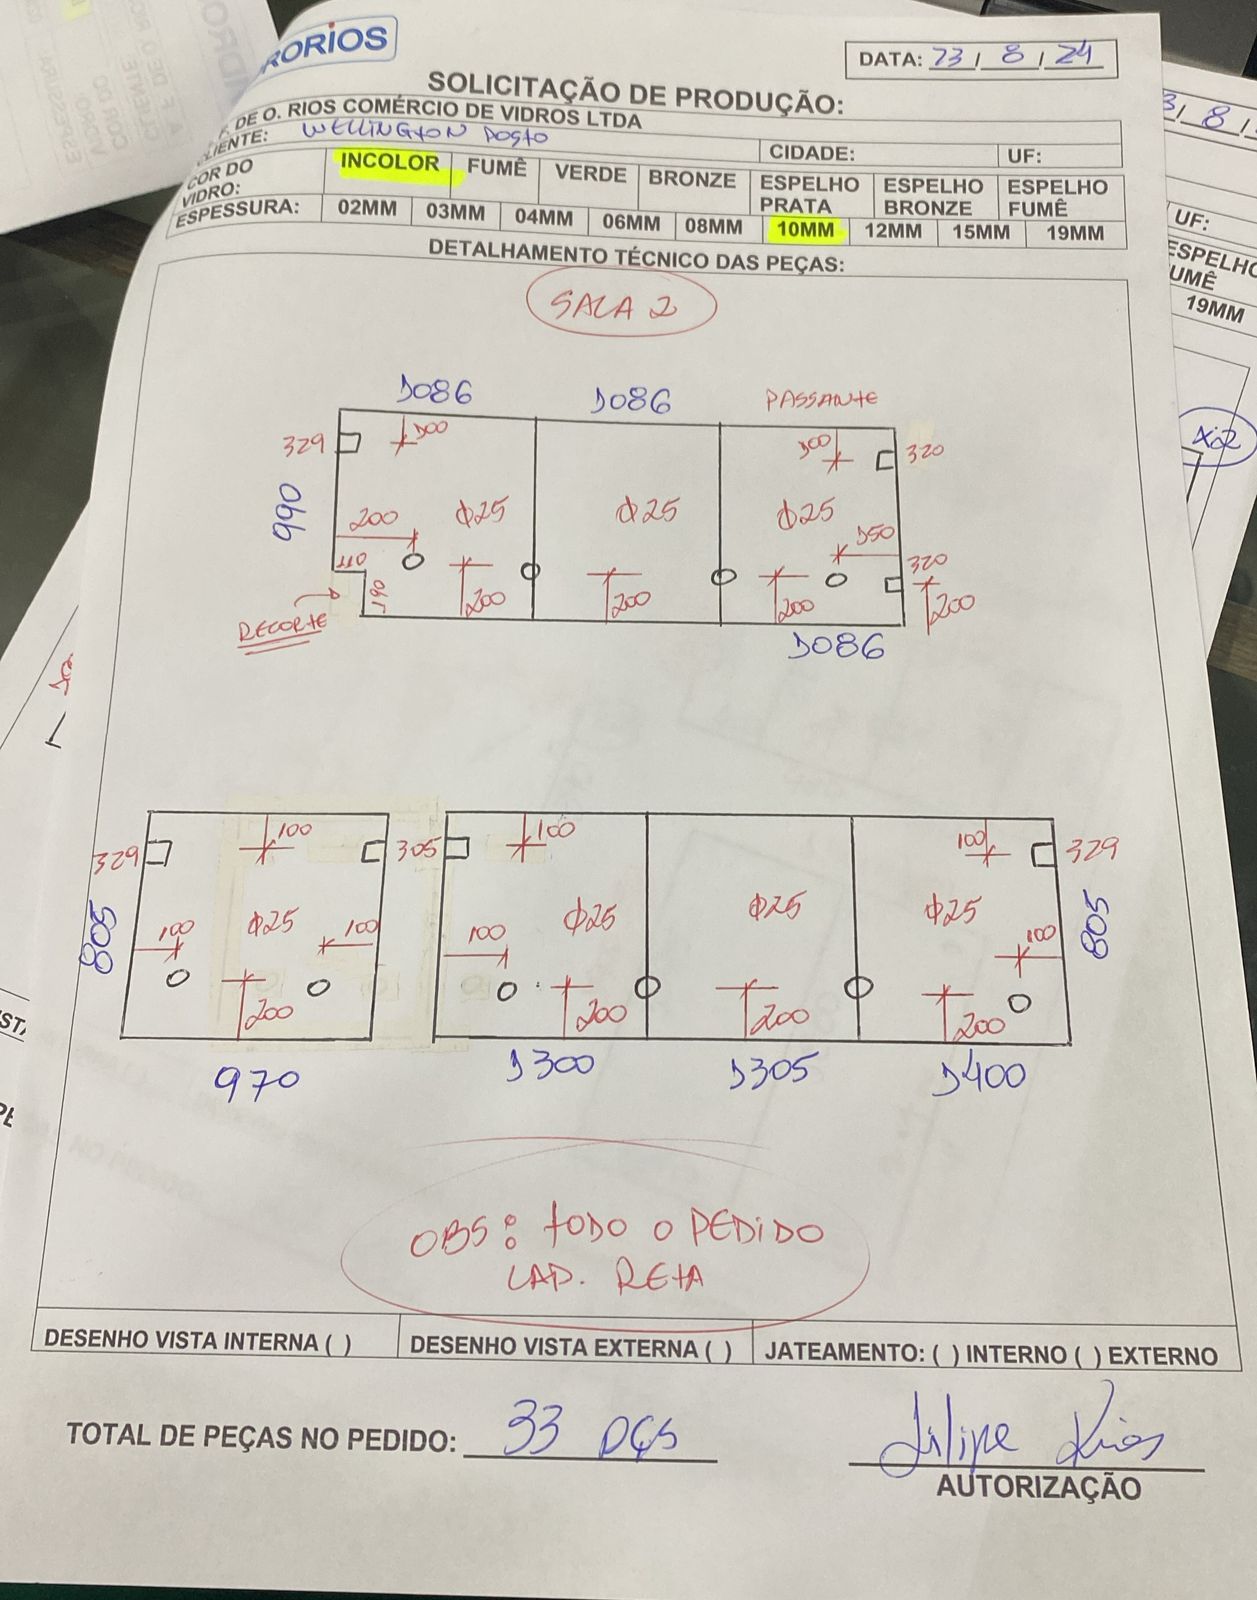 RORIOS
DATA: 23/ 8 /24
SOLICITAÇÃO DE PRODUÇÃO:
DE O. RIOS COMÉRCIO DE VIDROS LTDA
CLIENTE: WELLINGTON POSTO
CIDADE: UF:
COR DO VIDRO: INCOLOR FUMÊ VERDE BRONZE ESPELHO PRATA ESPELHO BRONZE ESPELHO FUMÊ
ESPESSURA: 02MM 03MM 04MM 06MM 08MM 10MM 12MM 15MM 19MM
DETALHAMENTO TÉCNICO DAS PEÇAS:
SALA 2
1086 1086 PASSANTE
329 100 100 320
990
200 Φ25 Φ25 Φ25 150
110 190 200 200 200 320 200
RECORTE
1086
329 100 305 100 100 329
805 100 Φ25 100 100 Φ25 Φ25 Φ25 100 805
200 200 200 200
970 1300 1305 1400
OBS: TODO O PEDIDO
LAP. RETA
DESENHO VISTA INTERNA ( ) DESENHO VISTA EXTERNA ( ) JATEAMENTO: ( ) INTERNO ( ) EXTERNO
TOTAL DE PEÇAS NO PEDIDO: 33 PÇS
Filipe Rios
AUTORIZAÇÃO
3/ 8 /
UF:
ESPELHO
UMÊ
19MM